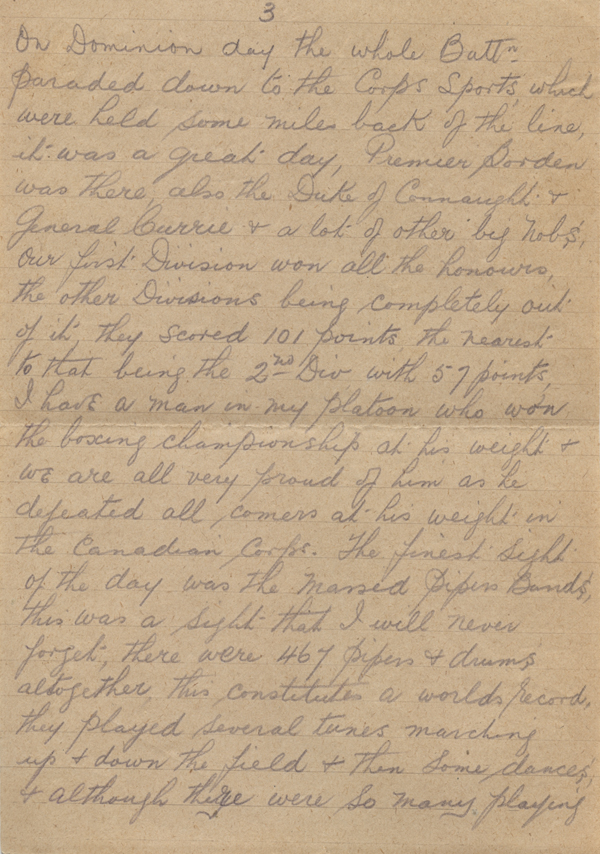 3
On Dominion day the whole Battn
paraded down to the Corps Sports, which
were held some miles back of the line,
it was a great day, Premier Borden
was there, also the Duke of Connaught &
General Currie & a lot of other big Nobs,
our first Division won all the honours,
the other Divisions being completely out
of it, they scored 101 points the nearest
to that being the 2nd Div with 57 points,
I have a man in my platoon who won
the boxing championship at his weight &
we are all very proud of him as he
defeated all comers at his weight in
the Canadian Corps. The finest sight
of the day was the massed Pipers Bands,
this was a sight that I will never
forget, there were 467 pipers & drums
altogether, this constitutes a worlds record,
they played several tunes marching
up & down the field & then some dances,
& although there were so many playing